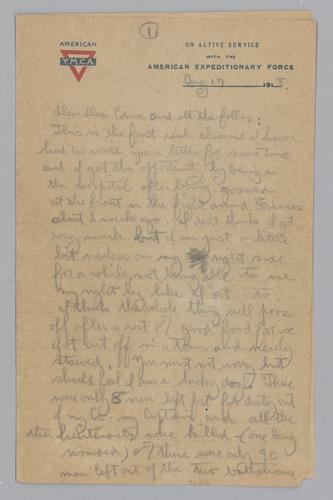 1
AMERICAN
Y.M.C.A.
ON ACTIVE SERVICE
WITH THE
AMERICAN EXPEDITIONARY FORCE
Aug 17 1918
Dear and all the folks:
This is the first real chance I have
had to write you a letter for some time
and I get the opportunity by being in
the hospital after being gassed
at the front in the fight around Fismes
about a week ago. I don't think I got
very much but I am just a little
bit useless on my right side
for a while, not being able to use
my right leg like I ort to.
I think the whole thing will pass
off after a rest & good food for we
got cut off in a town and nearly
starved. You must not worry but
should feel I am a lucky dog. There
were only 8 men left fit for duty out
of my Co. my Captain and all the
other lieutenants were killed (one being
wounded) & there were only 90
men left out of the two battalions